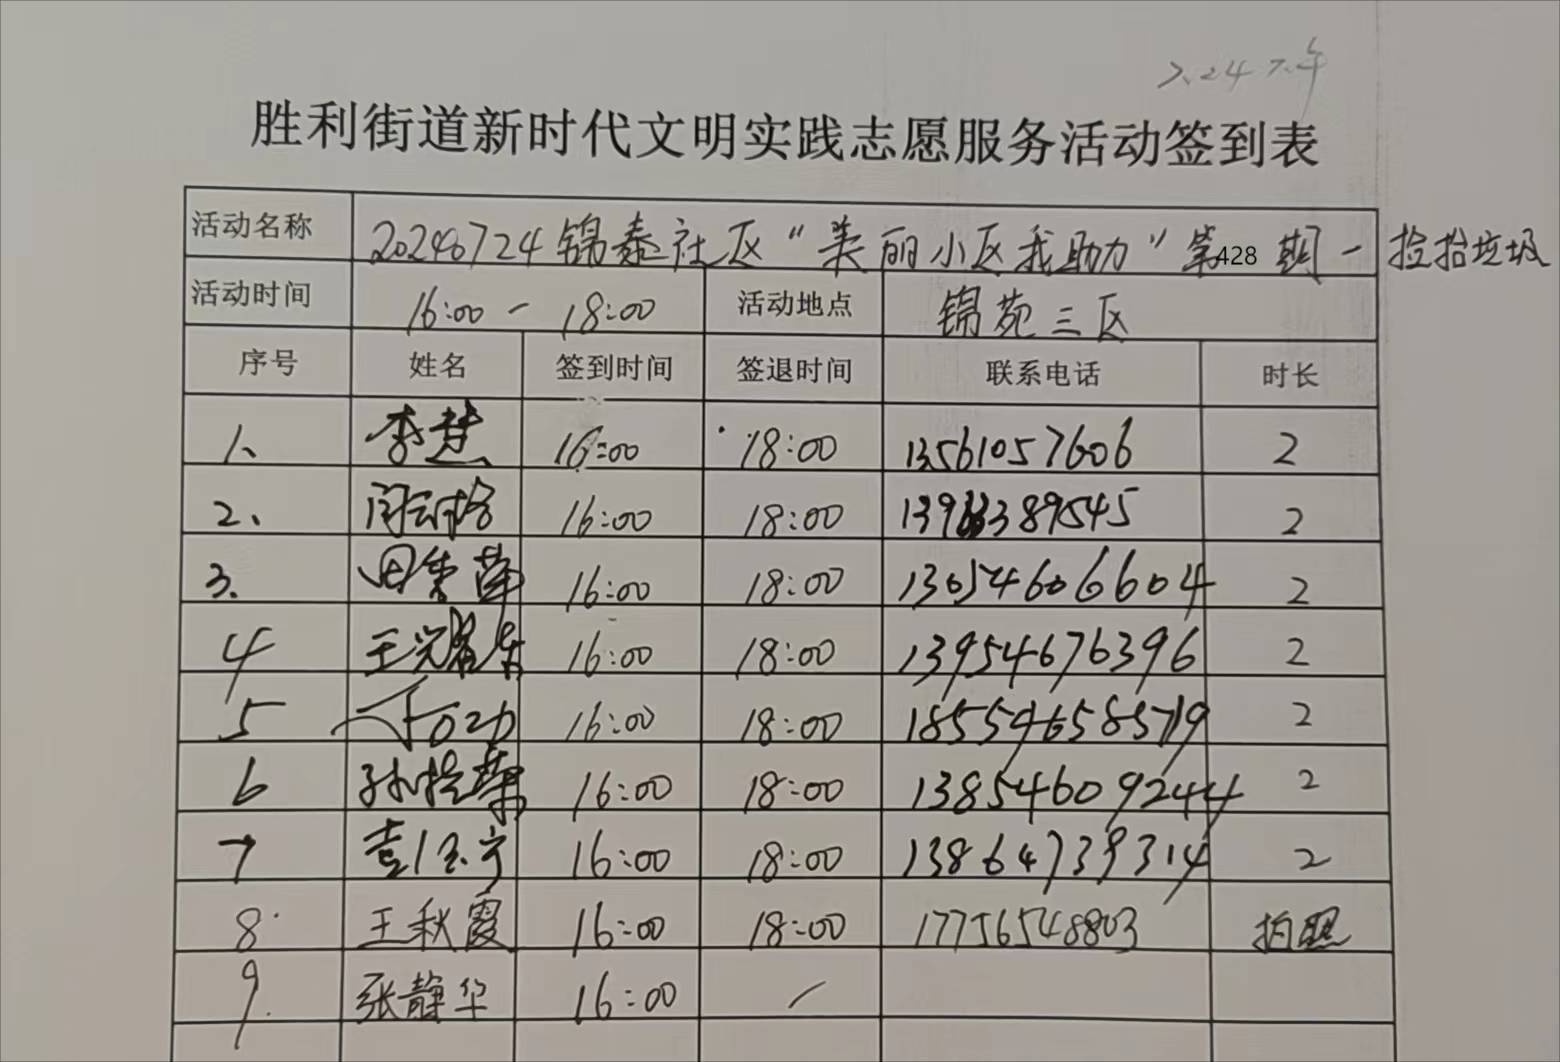 胜利街道新时代文明实践志愿服务活动签到表
活动名称 20240724锦泰社区“美丽小区我助力”第428期-捡拾垃圾
活动时间 16:00-18:00 活动地点 锦苑三区
序号 姓名 签到时间 签退时间 联系电话 时长
1、 李慧 16:00 18:00 13561057606 2
2、 16:00 18:00 2
3、 16:00 18:00 13054606604 2
4 16:00 18:00 13954676396 2
5 16:00 18:00 18554658579 2
6 16:00 18:00 13854609244 2
7 16:00 18:00 13864739314 2
8 王秋霞 16:00 18:00 17756548803 拍照
9. 张静华 16:00 /